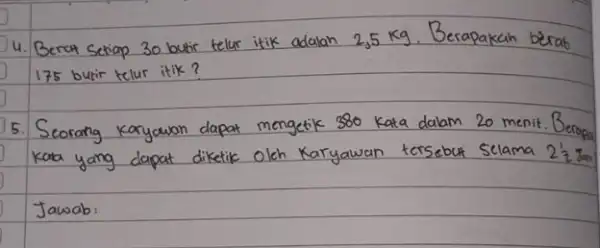 4. Berat setiap 30 butir telur itik adalah 2,5 Kg. Berapakah berat
175 butir telur itik?
5. Seorang karyawan dapat mengetik 380 kata dalam 20 menit. Berapa
kata yang dapat diketik oleh karyawan tersebut selama 2 1/2 Jam
Jawab: